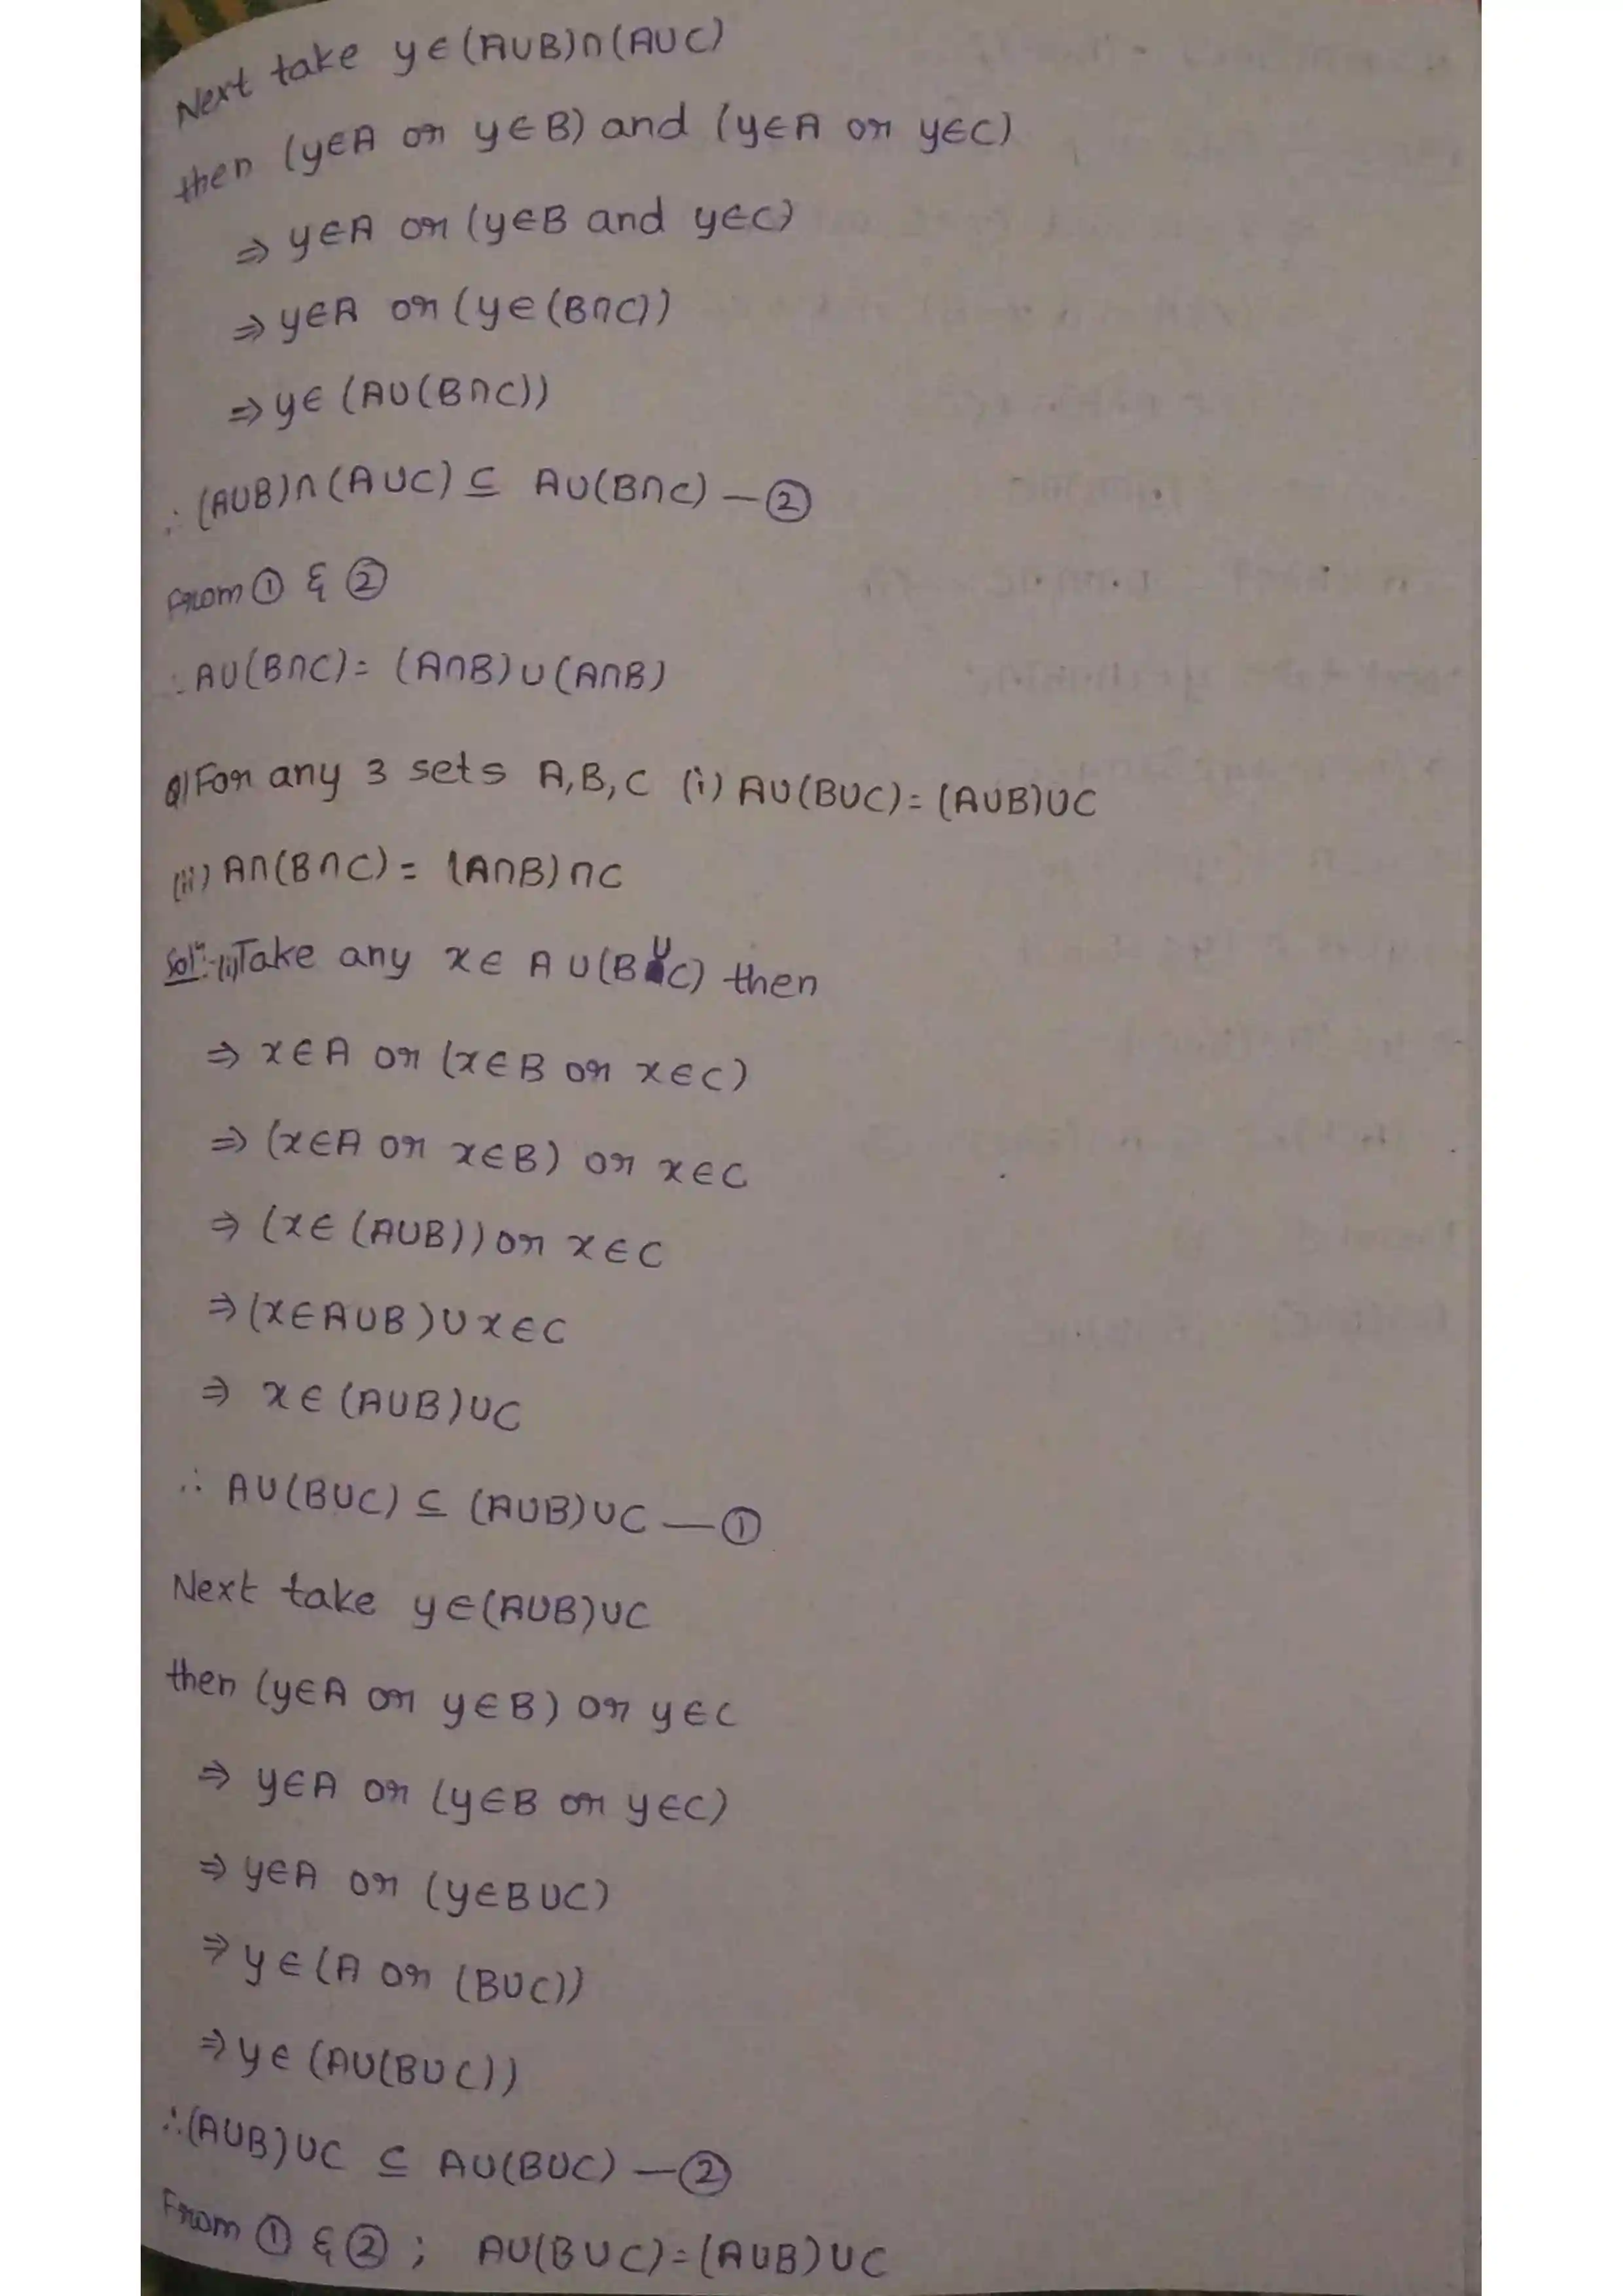 Next take y∈(A∪B)∩(A∪C)
then (y∈A or y∈B) and (y∈A or y∈C)
⇒ y∈A or (y∈B and y∈C)
⇒ y∈A or (y∈(B∩C))
⇒ y∈ (A∪(B∩C))
∴ (A∪B)∩(A∪C) ⊆ A∪(B∩C) — ②
From ① & ②
∴ A∪(B∩C) = (A∩B)∪(A∩B)
Q) For any 3 sets A,B,C (i) A∪(B∪C) = (A∪B)∪C
(ii) A∩(B∩C) = (A∩B)∩C
Solⁿ:-(i) Take any x∈ A∪(B∪C) then
⇒ x∈A or (x∈B or x∈C)
⇒ (x∈A or x∈B) or x∈C
⇒ (x∈ (A∪B)) or x∈C
⇒ (x∈A∪B)∪x∈C
⇒ x∈ (A∪B)∪C
∴ A∪(B∪C) ⊆ (A∪B)∪C — ①
Next take y∈(A∪B)∪C
then (y∈A or y∈B) or y∈C
⇒ y∈A or (y∈B or y∈C)
⇒ y∈A or (y∈B∪C)
⇒ y∈(A or (B∪C))
⇒ y∈ (A∪(B∪C))
∴ (A∪B)∪C ⊆ A∪(B∪C) — ②
From ① & ② ; A∪(B∪C) = (A∪B)∪C